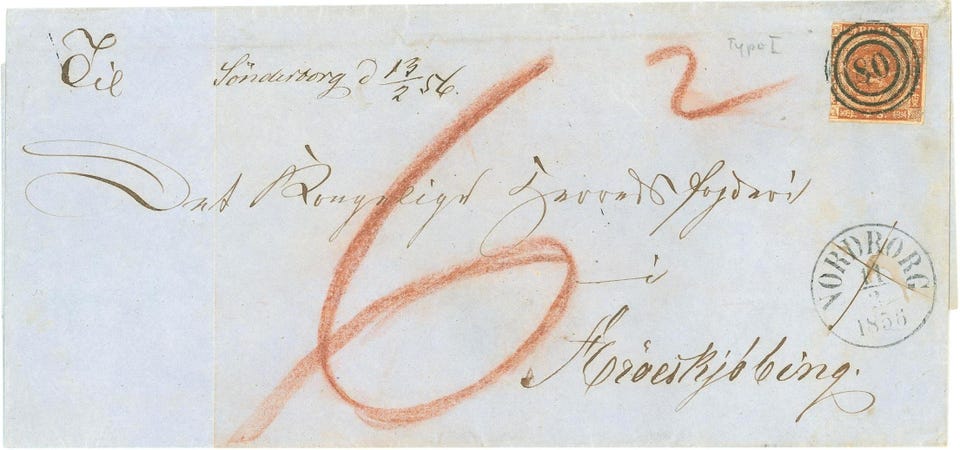 Til
Sönderborg d 13/2 56.
2
Type I
80
6
Det Kongelige Herredsfogderi
i
Æröeskjöbing.
NORDBORG
11
2
1856